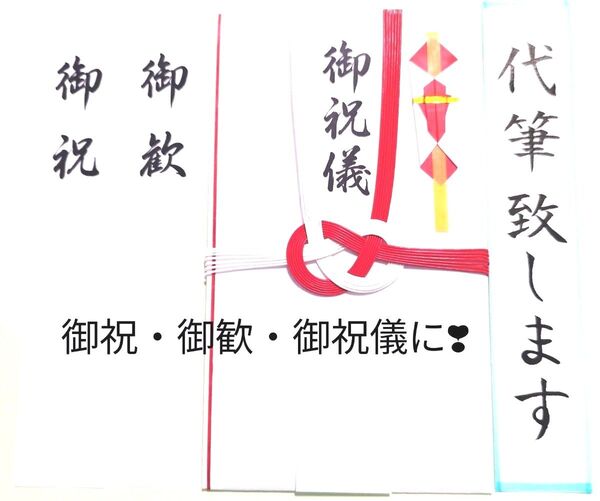 代筆致します
御祝儀
御歓
御祝
御祝・御歓・御祝儀に❣